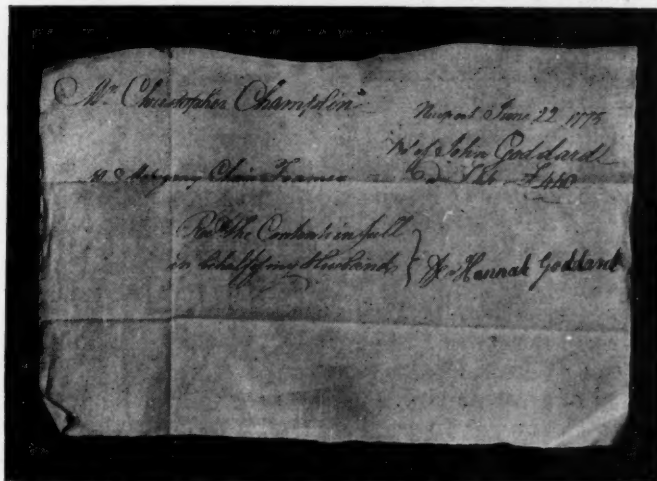 Mr. Christopher Champlin
Newport June 22 1775
of John Goddard
Mahogany Chair Frames £440
Recd. the Contents in full
in behalf of my Husband } Hannah Goddard